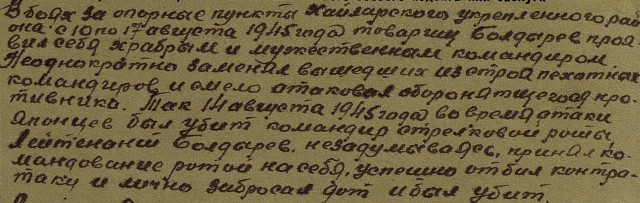 В боях за опорные пункты Хайларского укрепленного рай
она с 10 по 17 августа 1945 года товарищ Болдырев проя
вил себя храбрым и мужественным командиром.
Неоднократно заменял вышедших из строя пехотных
командиров и смело атаковал оборонятщегося про-
тивника. Так 14 августа 1945 года во время атаки
Японцев был убит командир стрелковой роты,
Лейтенант Болдырев, незадумываясь, принял ко-
мандование ротой на себя, успешно отбил контр-
атаку и лично забросал дот и был убит.